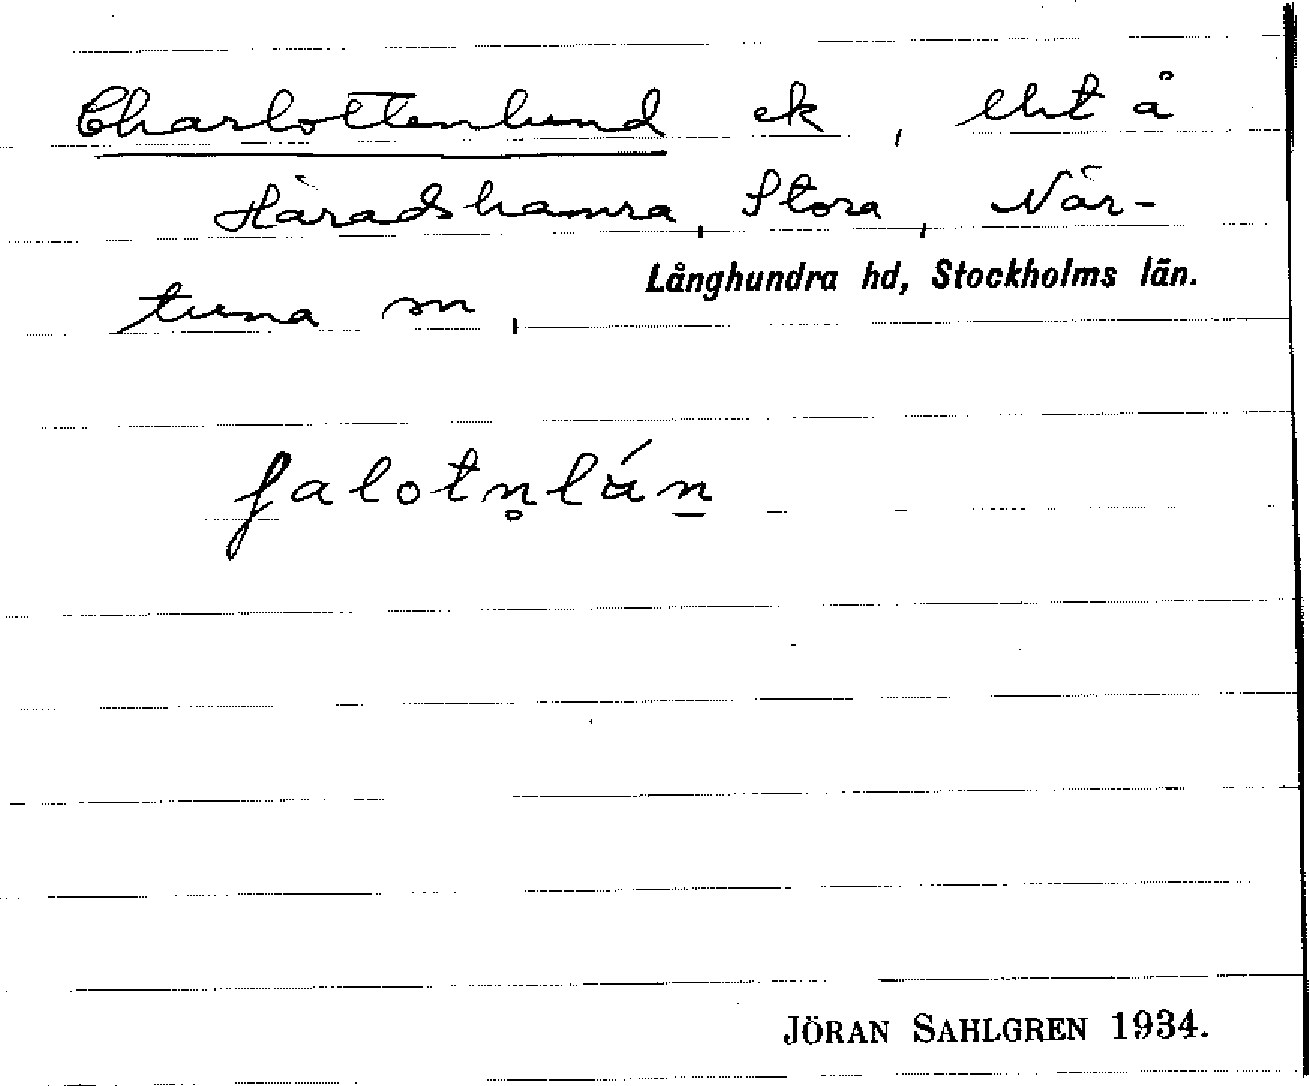 Charlottenlund ek, lht å
Häradshamra, Stora, När-
tuna sn,
Långhundra hd, Stockholms län.
ʃalotn̥lún̲
JÖRAN SAHLGREN 1934.